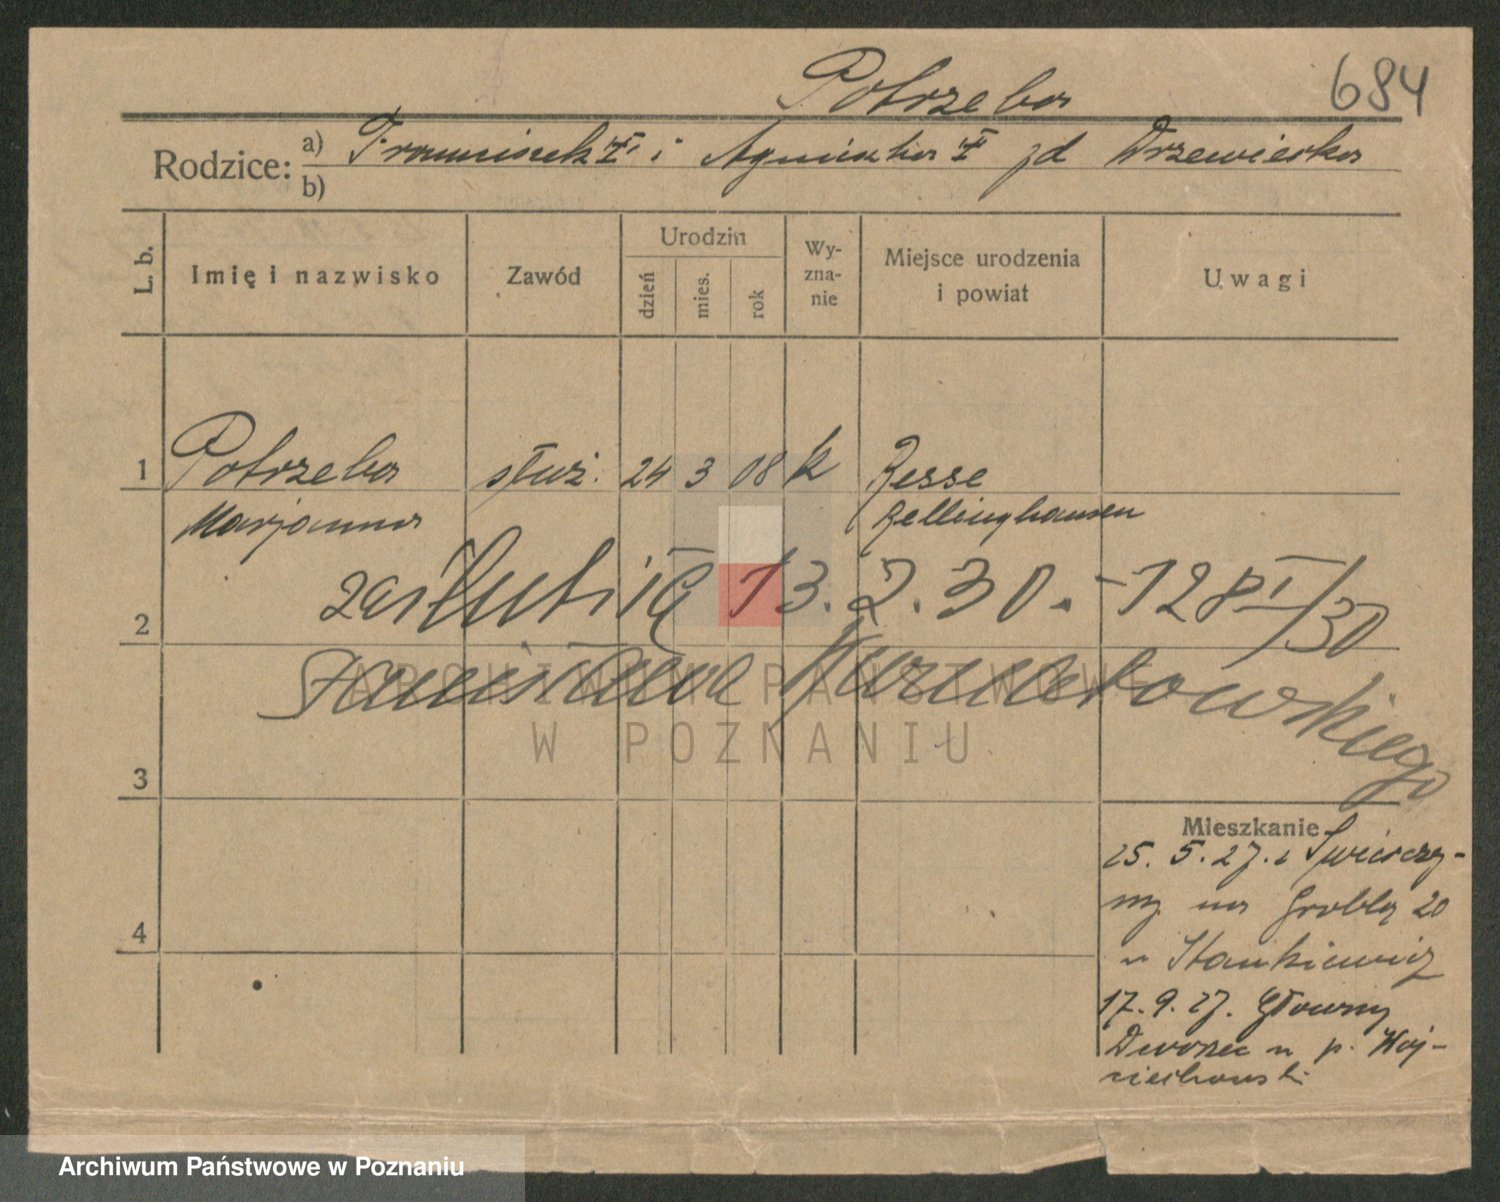 Potrzeba
684
Rodzice: a) Franciszek i Agnieszka zd Drzewiecka
b)
L. b.
Imię i nazwisko
Zawód
Urodzin
dzień
mies.
rok
Wy-
zna-
nie
Miejsce urodzenia
i powiat
Uwagi
1 Potrzeba służ. 24 3 08 k Resse
Marjanna Rellinghausen
2 zaślubiła 13.2.30. - 128 I/30
Stanisława
3
Mieszkanie
25. 5. 27. z Świerczy-
ny na Groblą 20
u Stankiewicz
4
17. 9. 27. Główny
Dworzec u p. Woj-
ciechowski
ARCHIWUM PAŃSTWOWE
W POZNANIU
Archiwum Państwowe w Poznaniu